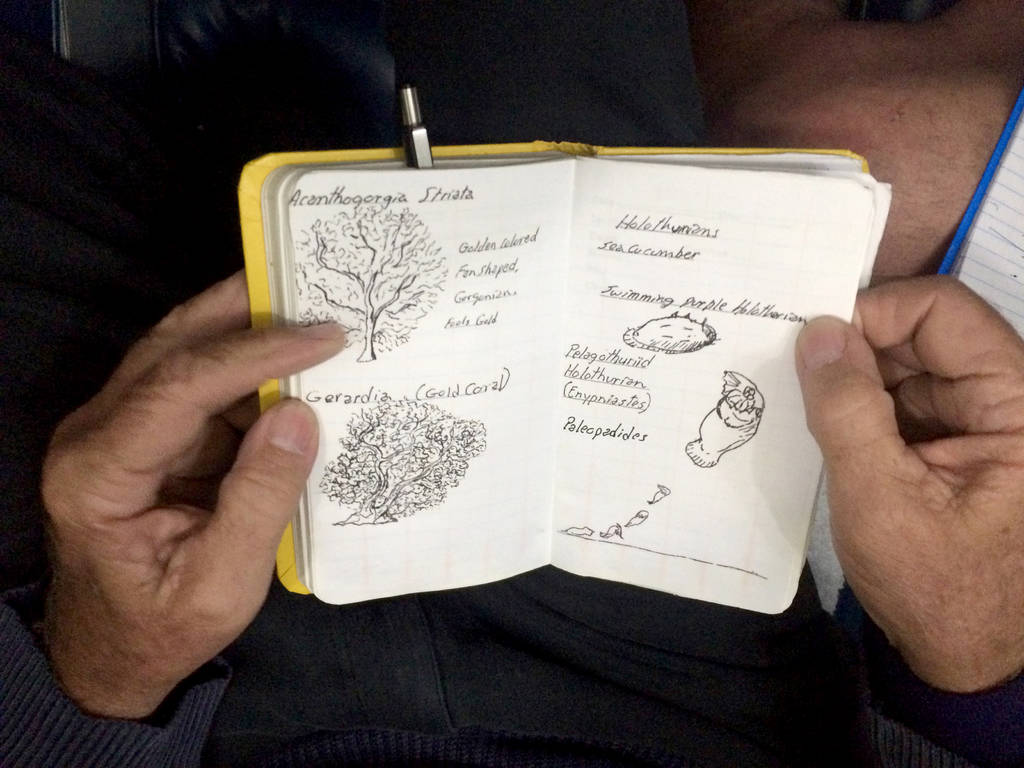 Acanthogorgia Striata
Golden colored
Fan shaped,
Gorgonian,
Fools Gold
Gerardia (Gold Coral)
Holothurians
sea cucumber
Swimming purple Holothurian
Pelagothuriid
Holothurian
(Enypniastes)
Paleopadides